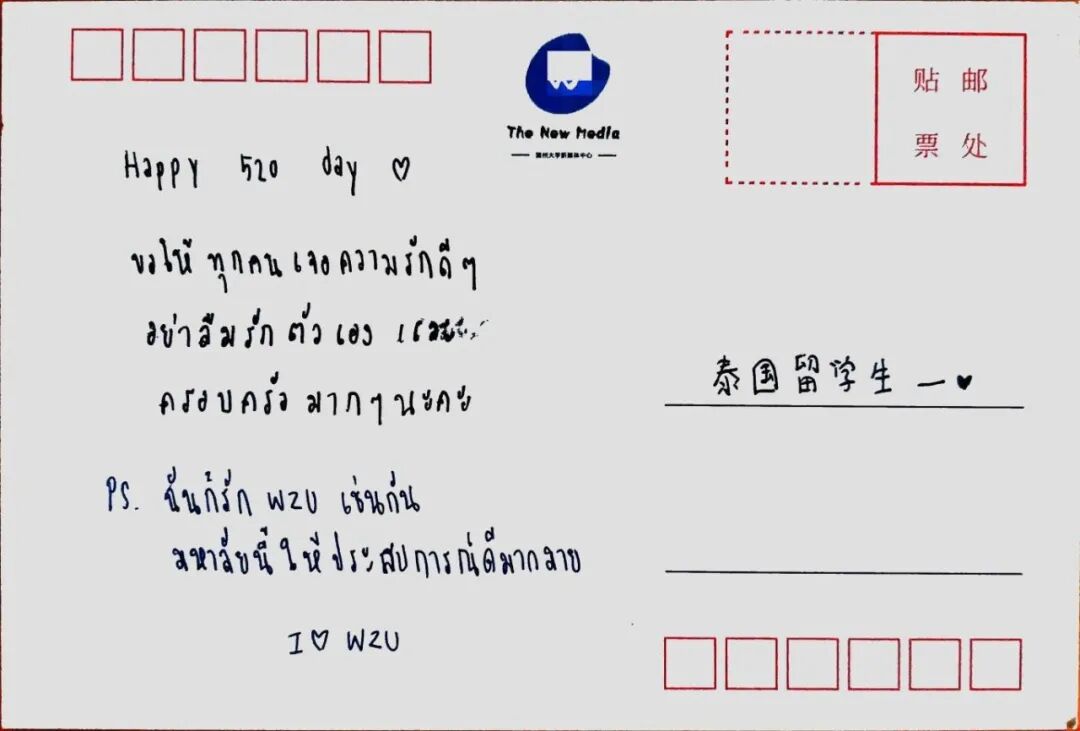 The New Media
温州大学新媒体中心
贴邮
票处
Happy 520 day ♡
ขอให้ทุกคนเจอความรักดีๆ
อย่าลืมรักตัวเอง
ครอบครัวมากๆนะคะ
泰国留学生 — ♥
PS. ฉันก็รัก WZU เช่นกัน
มหาลัยนี้ให้ประสบการณ์ดีมากมาย
I ♡ WZU